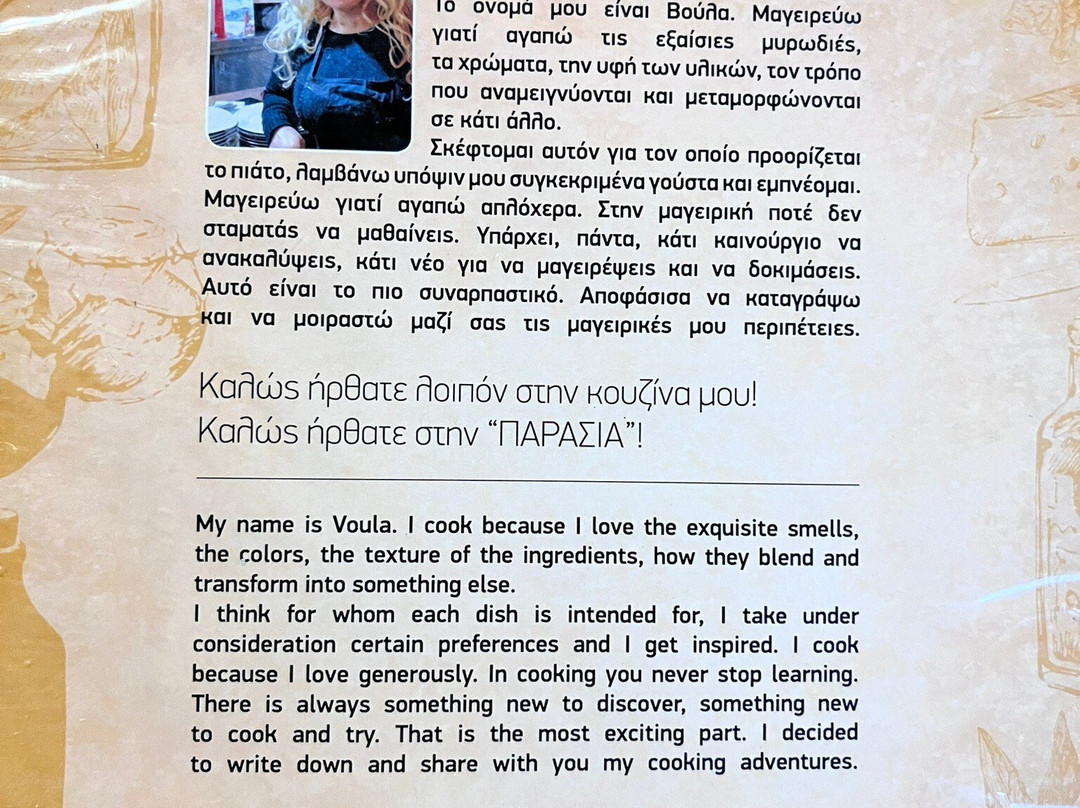 Το όνομά μου είναι Βούλα. Μαγειρεύω
γιατί αγαπώ τις εξαίσιες μυρωδιές,
τα χρώματα, την υφή των υλικών, τον τρόπο
που αναμειγνύονται και μεταμορφώνονται
σε κάτι άλλο.
Σκέφτομαι αυτόν για τον οποίο προορίζεται
το πιάτο, λαμβάνω υπόψιν μου συγκεκριμένα γούστα και εμπνέομαι.
Μαγειρεύω γιατί αγαπώ απλόχερα. Στην μαγειρική ποτέ δεν
σταματάς να μαθαίνεις. Υπάρχει, πάντα, κάτι καινούργιο να
ανακαλύψεις, κάτι νέο για να μαγειρέψεις και να δοκιμάσεις.
Αυτό είναι το πιο συναρπαστικό. Αποφάσισα να καταγράψω
και να μοιραστώ μαζί σας τις μαγειρικές μου περιπέτειες.
Καλώς ήρθατε λοιπόν στην κουζίνα μου!
Καλώς ήρθατε στην “ΠΑΡΑΣΙΑ”!
My name is Voula. I cook because I love the exquisite smells,
the colors, the texture of the ingredients, how they blend and
transform into something else.
I think for whom each dish is intended for, I take under
consideration certain preferences and I get inspired. I cook
because I love generously. In cooking you never stop learning.
There is always something new to discover, something new
to cook and try. That is the most exciting part. I decided
to write down and share with you my cooking adventures.